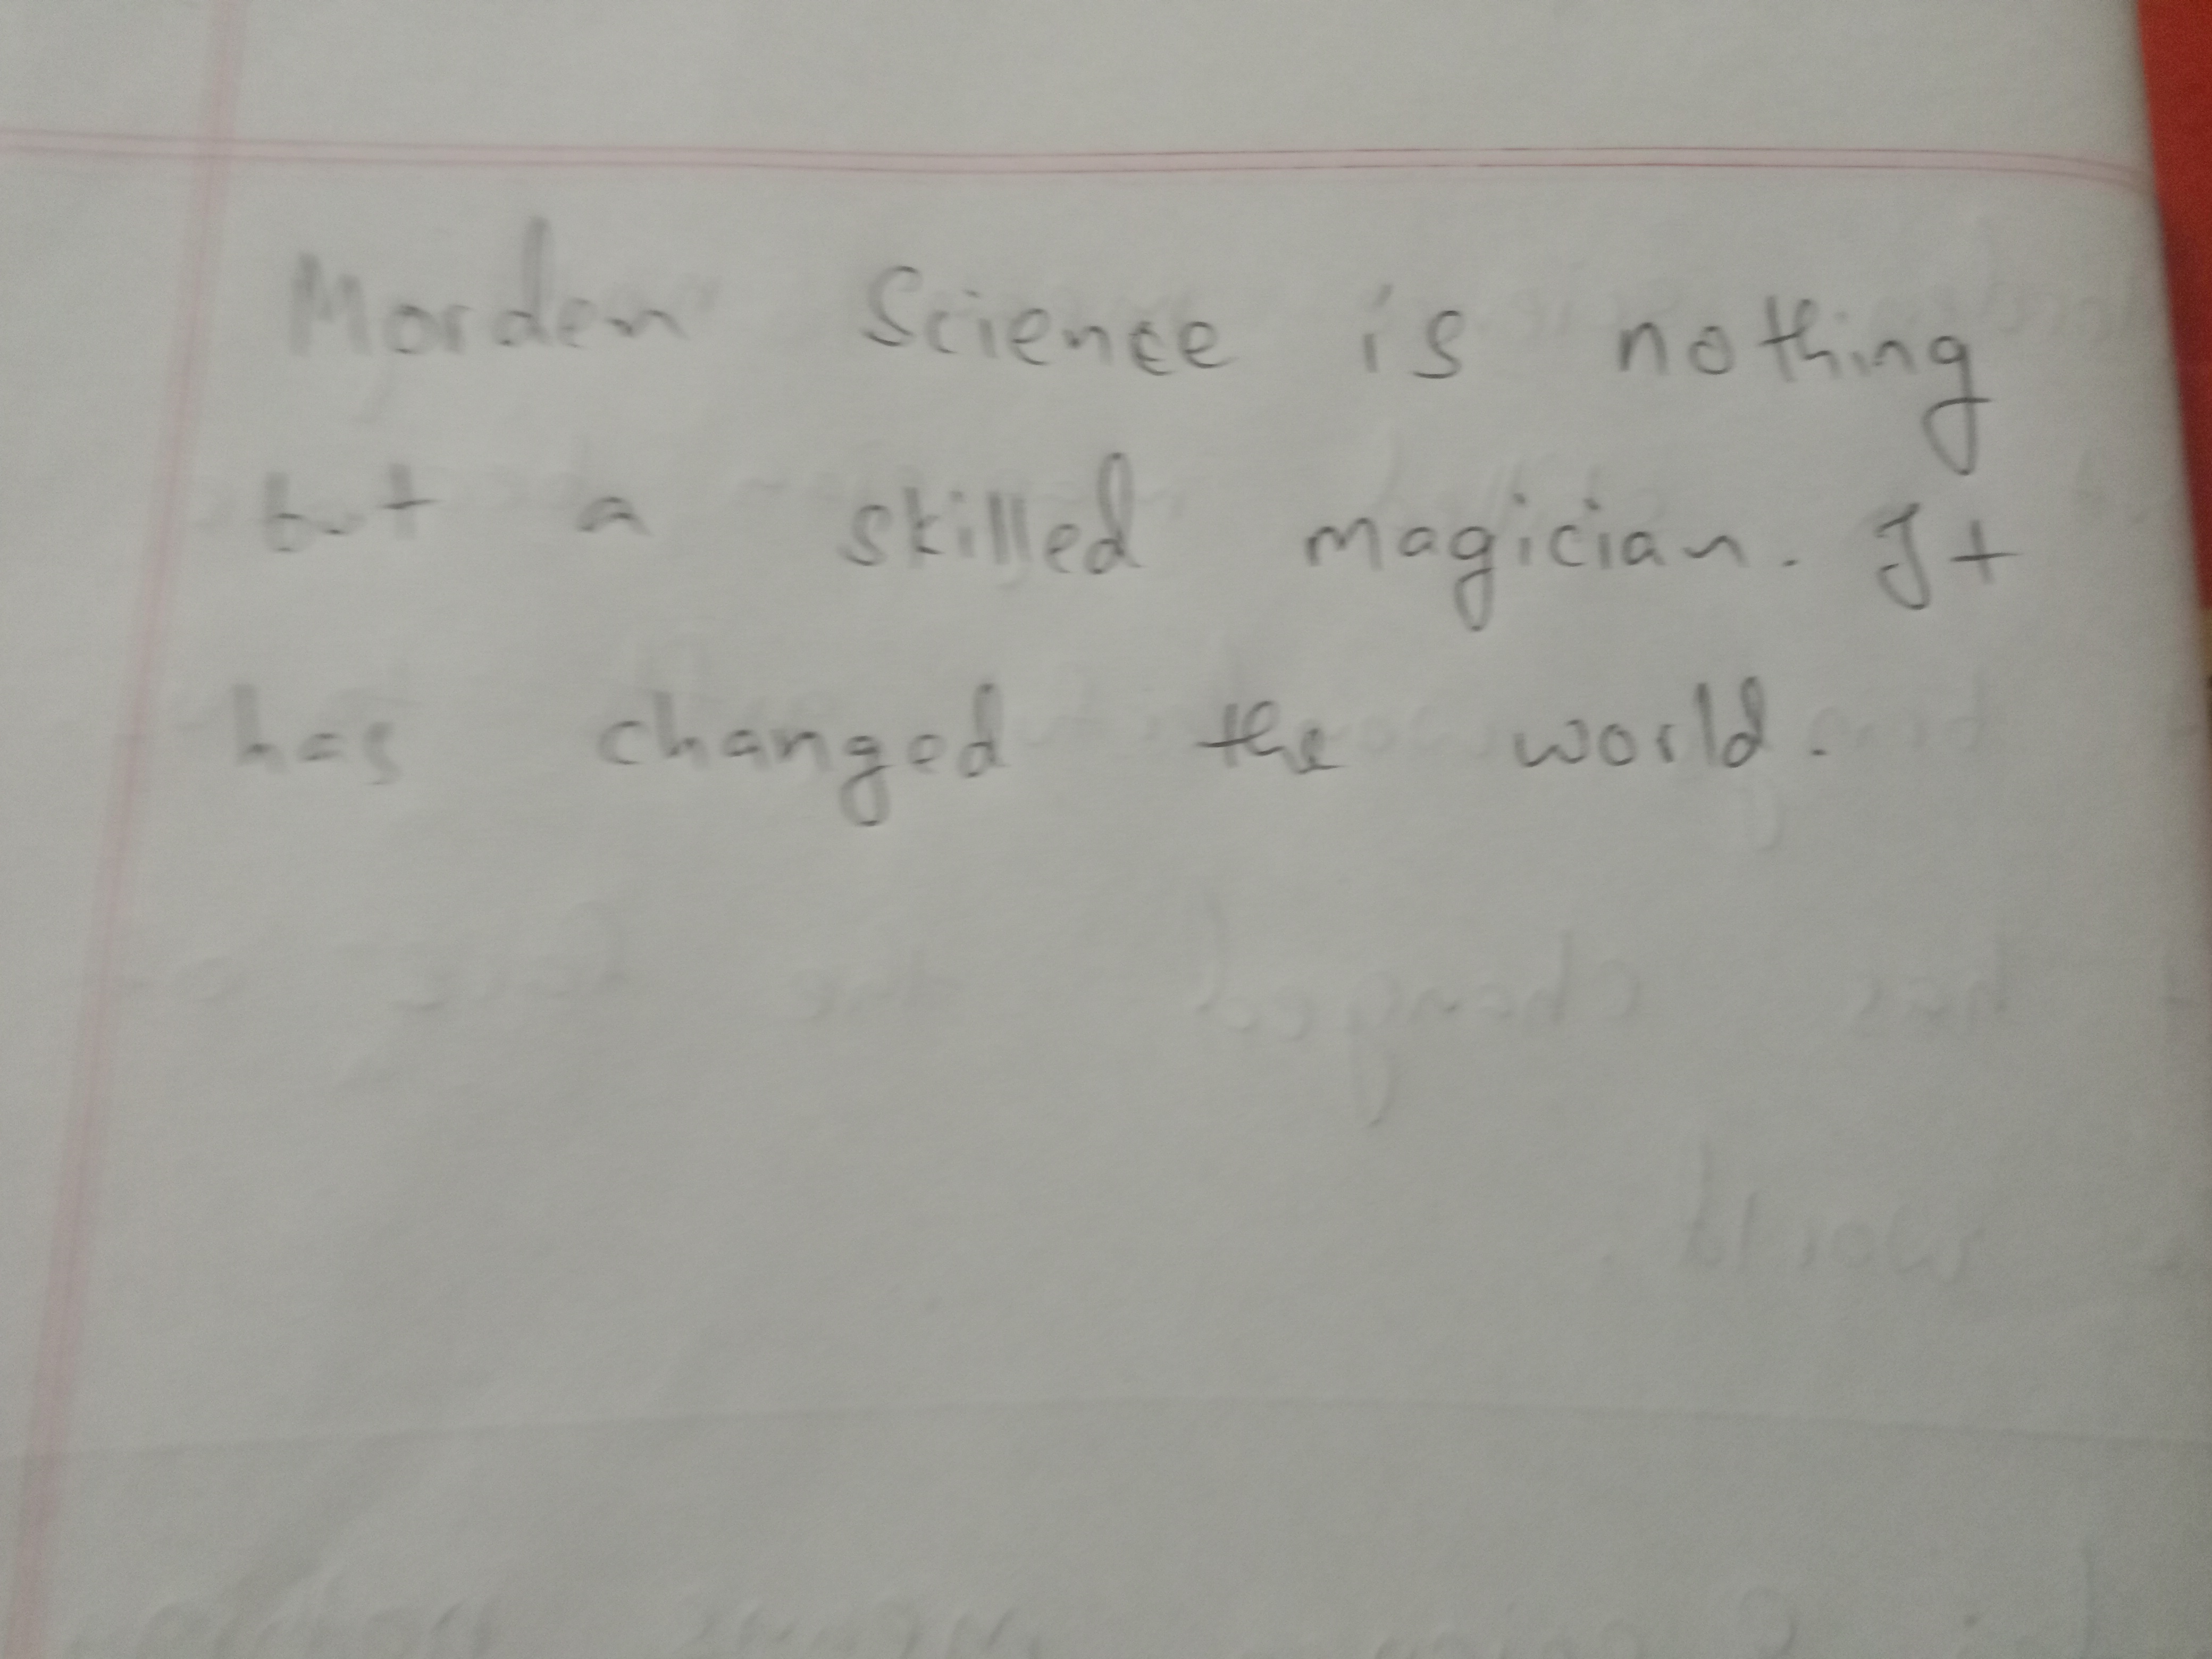 Morden Science is nothing
but a skilled magician. It
has changed the world.